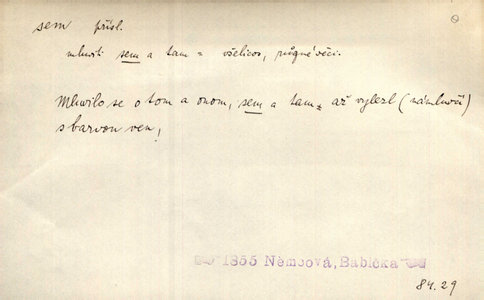 sem přísl.
mluviti sem a tam = všelicos, různé věci.
Mluvilo se o tom a onom, sem a tam, až vylezl (námluvčí)
s barvou ven,
1855 Němcová, Babička
84.29